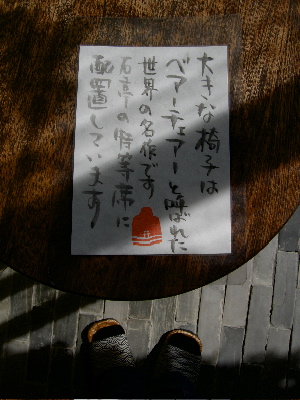 大きな椅子は
ベアーチェアーと呼ばれた
世界の名作です
石亭の特等席に
配置しています